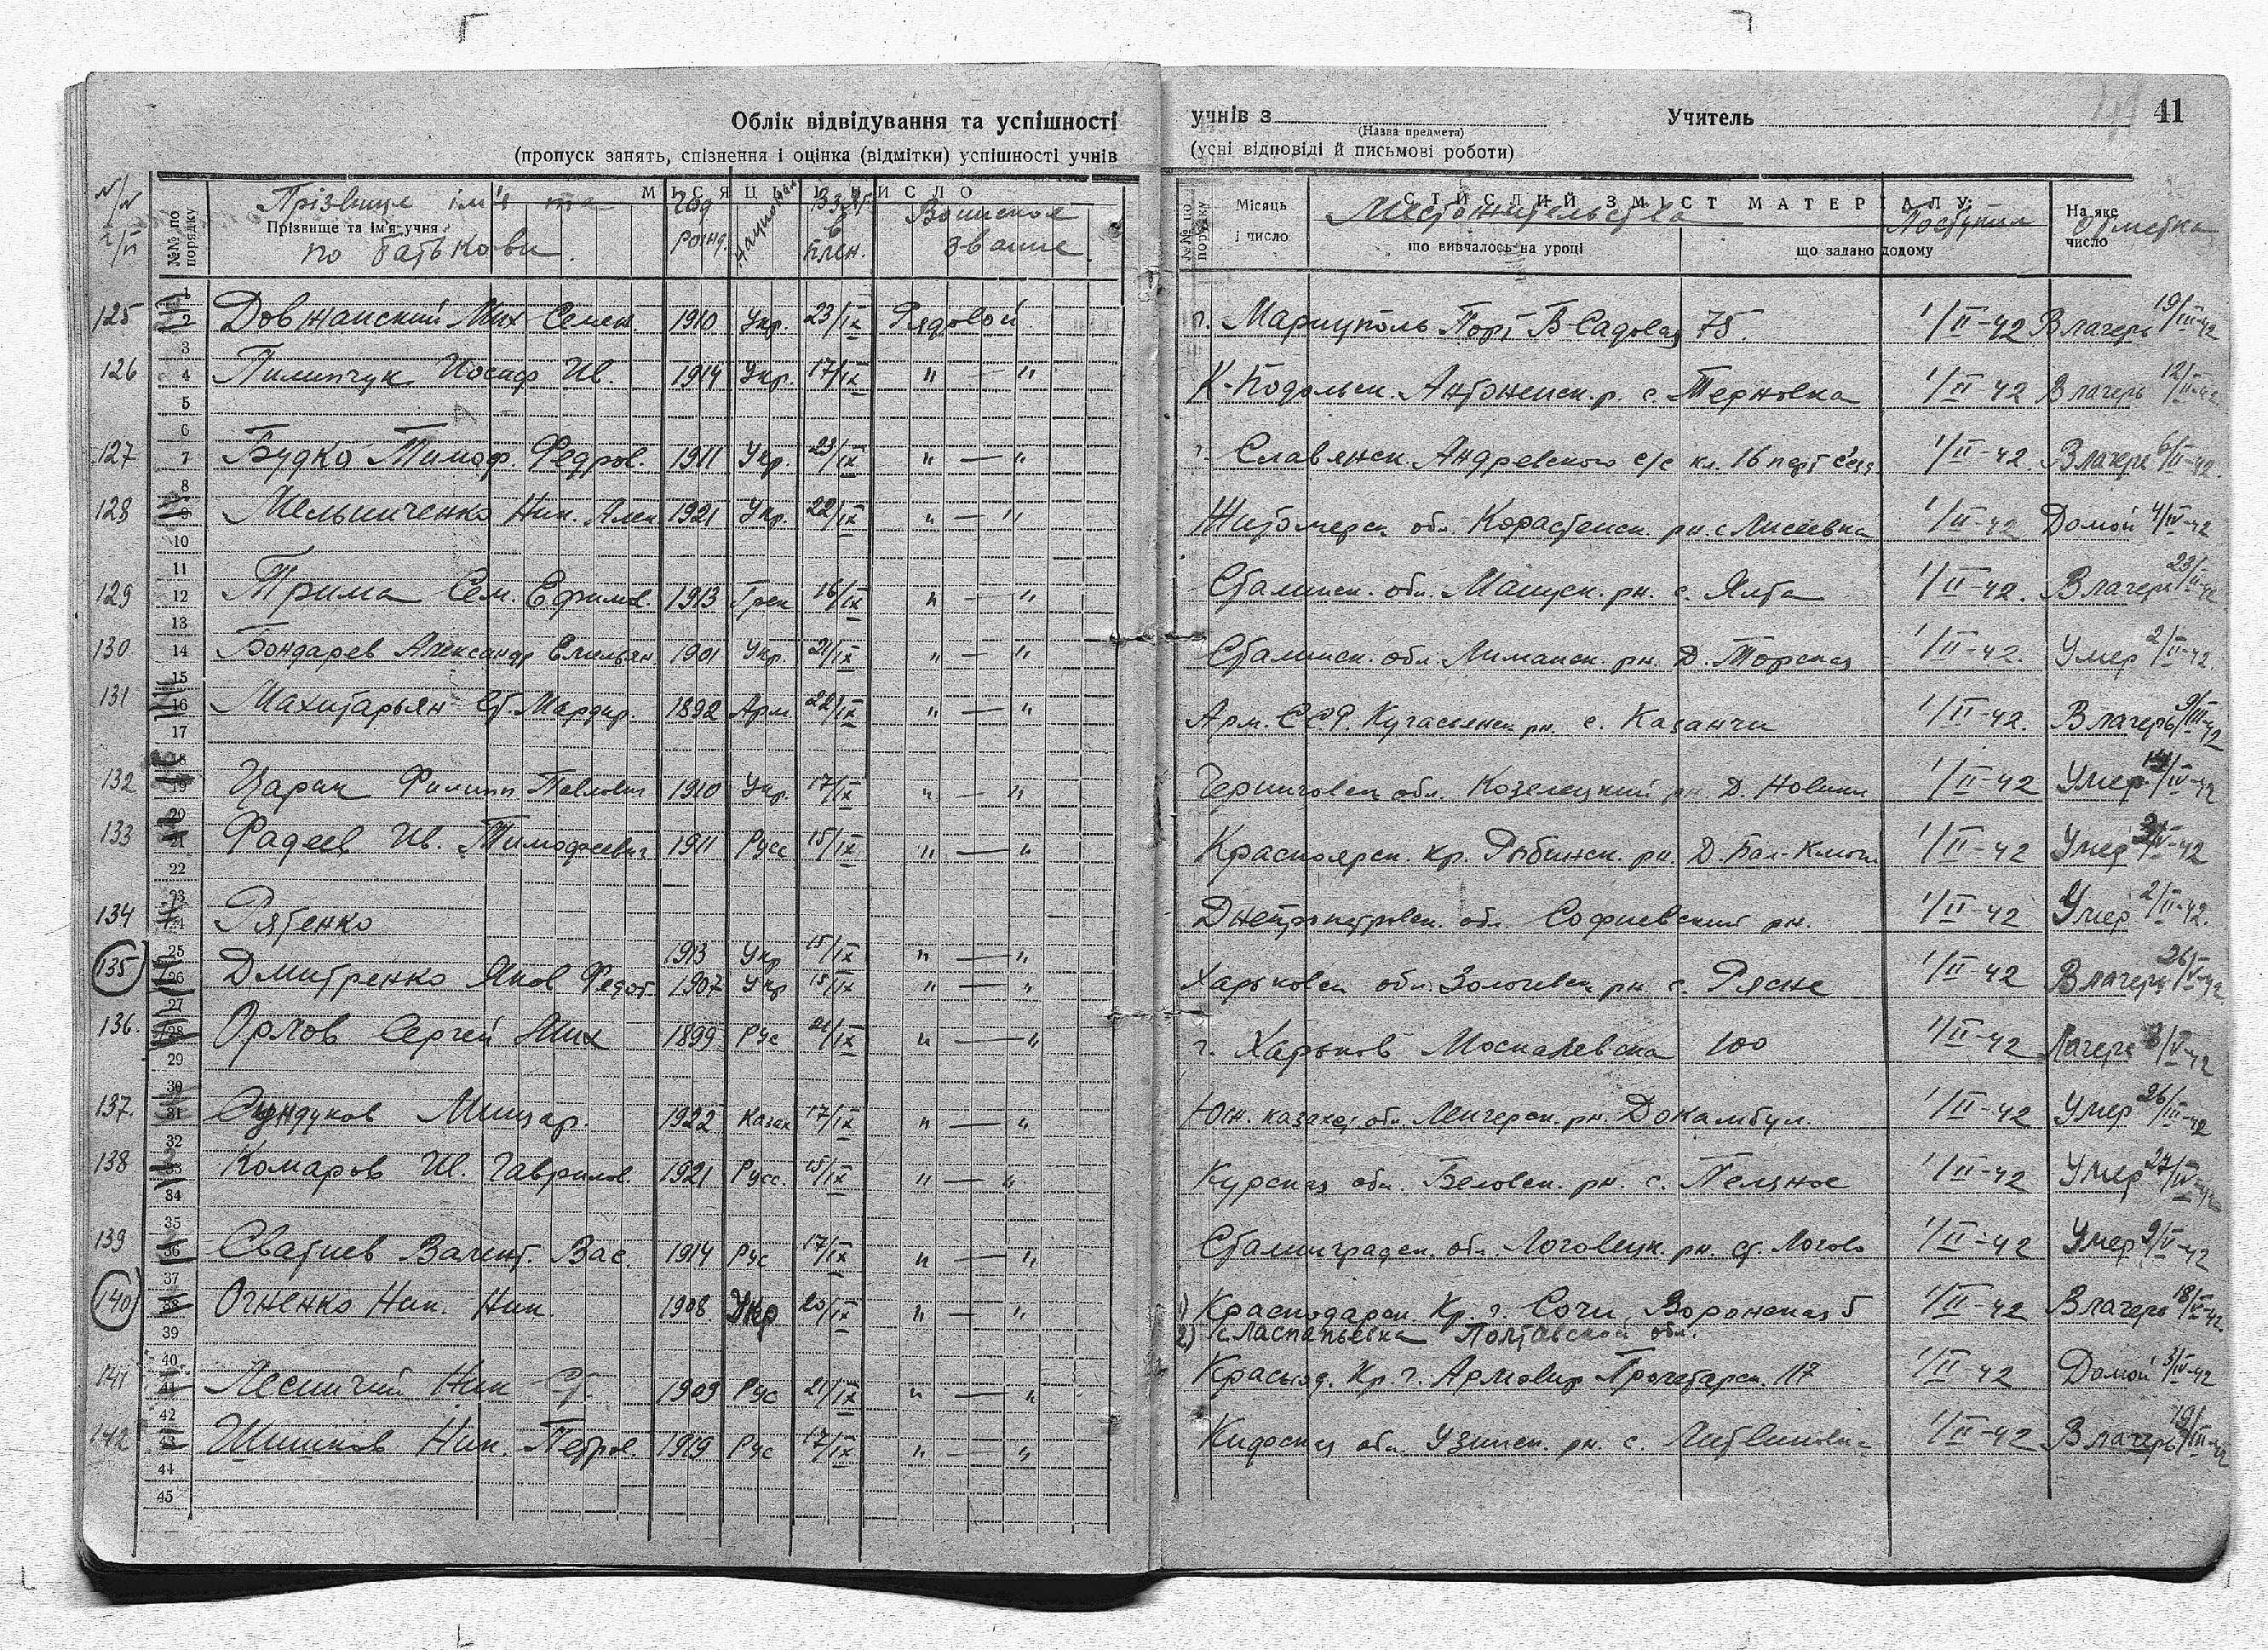 41
Облік відвідування та успішності учнів з Учитель
(Назва предмета)
(пропуск занять, спізнення і оцінка (відмітки) успішності учнів (усні відповіді й письмові роботи)
№№ по порядку Прізвище та ім'я учня МІСЯЦЬ І ЧИСЛО №№ по порядку Місяць і число СТИСЛИЙ ЗМІСТ МАТЕРІАЛУ На яке число
що вивчалось на уроці що задано додому
N/N п/п Прізвище ім'я та по батькови Год рожд. Национал. Взят в плен. Воинское звание Местожительства Поступил Отметка
125 Довжанский Мих Семен. 1910 Укр. 23/IX Рядовой г. Мариуполь Порт В-Садовая 75. 1/II-42 В лагерь 19/III-42
126 Пилипчук Иосиф Ив. 1914 Укр. 17/IX " — " К-Подольск. Антонинск. р. с. Терновка 1/II-42 В лагерь 12/II-42
127 Будко Тимоф. Федров. 1911 Укр. 23/IX " — " г. Славянск. Андревского с/с кл. 16 1/II-42. В лагерь 6/II-42.
128 Мельниченко Ник. Алек 1921 Укр. 22/IX " — " Житомерск. обл. Корастенск. рн. с Лисиевка 1/II-42 Домой 4/IV-42
129 Трима Сем. Ефимов. 1913 Грек 16/IX " — " Сталинск. обл. Мануск. рн. с. Ялта 1/II-42. В лагерь 23/II-42
130 Бондарев Александр Емильян. 1901 Укр. 21/IX " — " Сталинск. обл. Лиманск. рн. Д. Торская 1/II-42. Умер 2/II-42.
131 Махитарьян Ст. Мардир. 1892 Арм. 22/IX " — " Арм. ССР. рн. с. Казанчи 1/II-42. В лагерь 9/III-42
132 Царик Филипп Павлович 1910 Укр. 17/IX " — " Черниговск обл. Козелецкий рн Д. Новики 1/II-42 Умер /IV-42
133 Фадеев Ив. Тимофеевич 1911 Русс 15/IX " — " Красноярск. кр. Рыбинск. рн. Д. Бал-Ключ. 1/II-42 Умер /IV-42
134 Рятенко 1913 Укр 15/IX " — " Днепропетровск. обл. Софиевский рн. 1/II-42 Умер 2/II-42.
135 Дмитренко Яков Федот. 1907 Укр 15/IX " — " Харьковск обл. Золочевск рн с. Рясне 1/II-42 В лагерь 26/V-42
136. Орлов Сергей Мих 1899 Рус 21/IX " — " г. Харьков Москалевска 100 1/II-42 Лагерь 3/V-42
137. Сундуков Мицар. 1922 Казах 17/IX " — " Юж. казахс обл. рн. Докамбул. 1/II-42 Умер 26/III-42
138 Комаров Ив. Гаврилов. 1921 Русс. 15/IX " — " Курская обл. Беловск. рн. с. Пеляное 1/II-42 Умер 27/IV-42
139 Сватиев Вагент. Вас. 1914 Рус 17/IX " — " Сталинградск. обл. Логовецк. рн. ст. Логово 1/II-42 Умер 9/V-42
140 Огненко Ник. Ник. 1908. Укр 20/IX " — " 1) Краснодарск Кр. г. Сочи Воронская 5 1/II-42 В лагерь 18/V-42.
2) с. Ласпапьевка Полтавской обл.
141 Лесничий Ник Ст. 1909 Рус 21/IX " — " Краснод. Кр. г. Армовир Пролетарск. 117 1/II-42 Домой 3/IV-42
142 Шишков Ник. Петров. 1919 Рус 17/IX " — " обл. Узинск. рн. с. 1/II-42 В лагерь 19/III-42
1
2
3
4
5
6
7
8
9
10
11
12
13
14
15
16
17
18
19
20
21
22
23
24
25
26
27
28
29
30
31
32
33
34
35
36
37
38
39
40
41
42
43
44
45